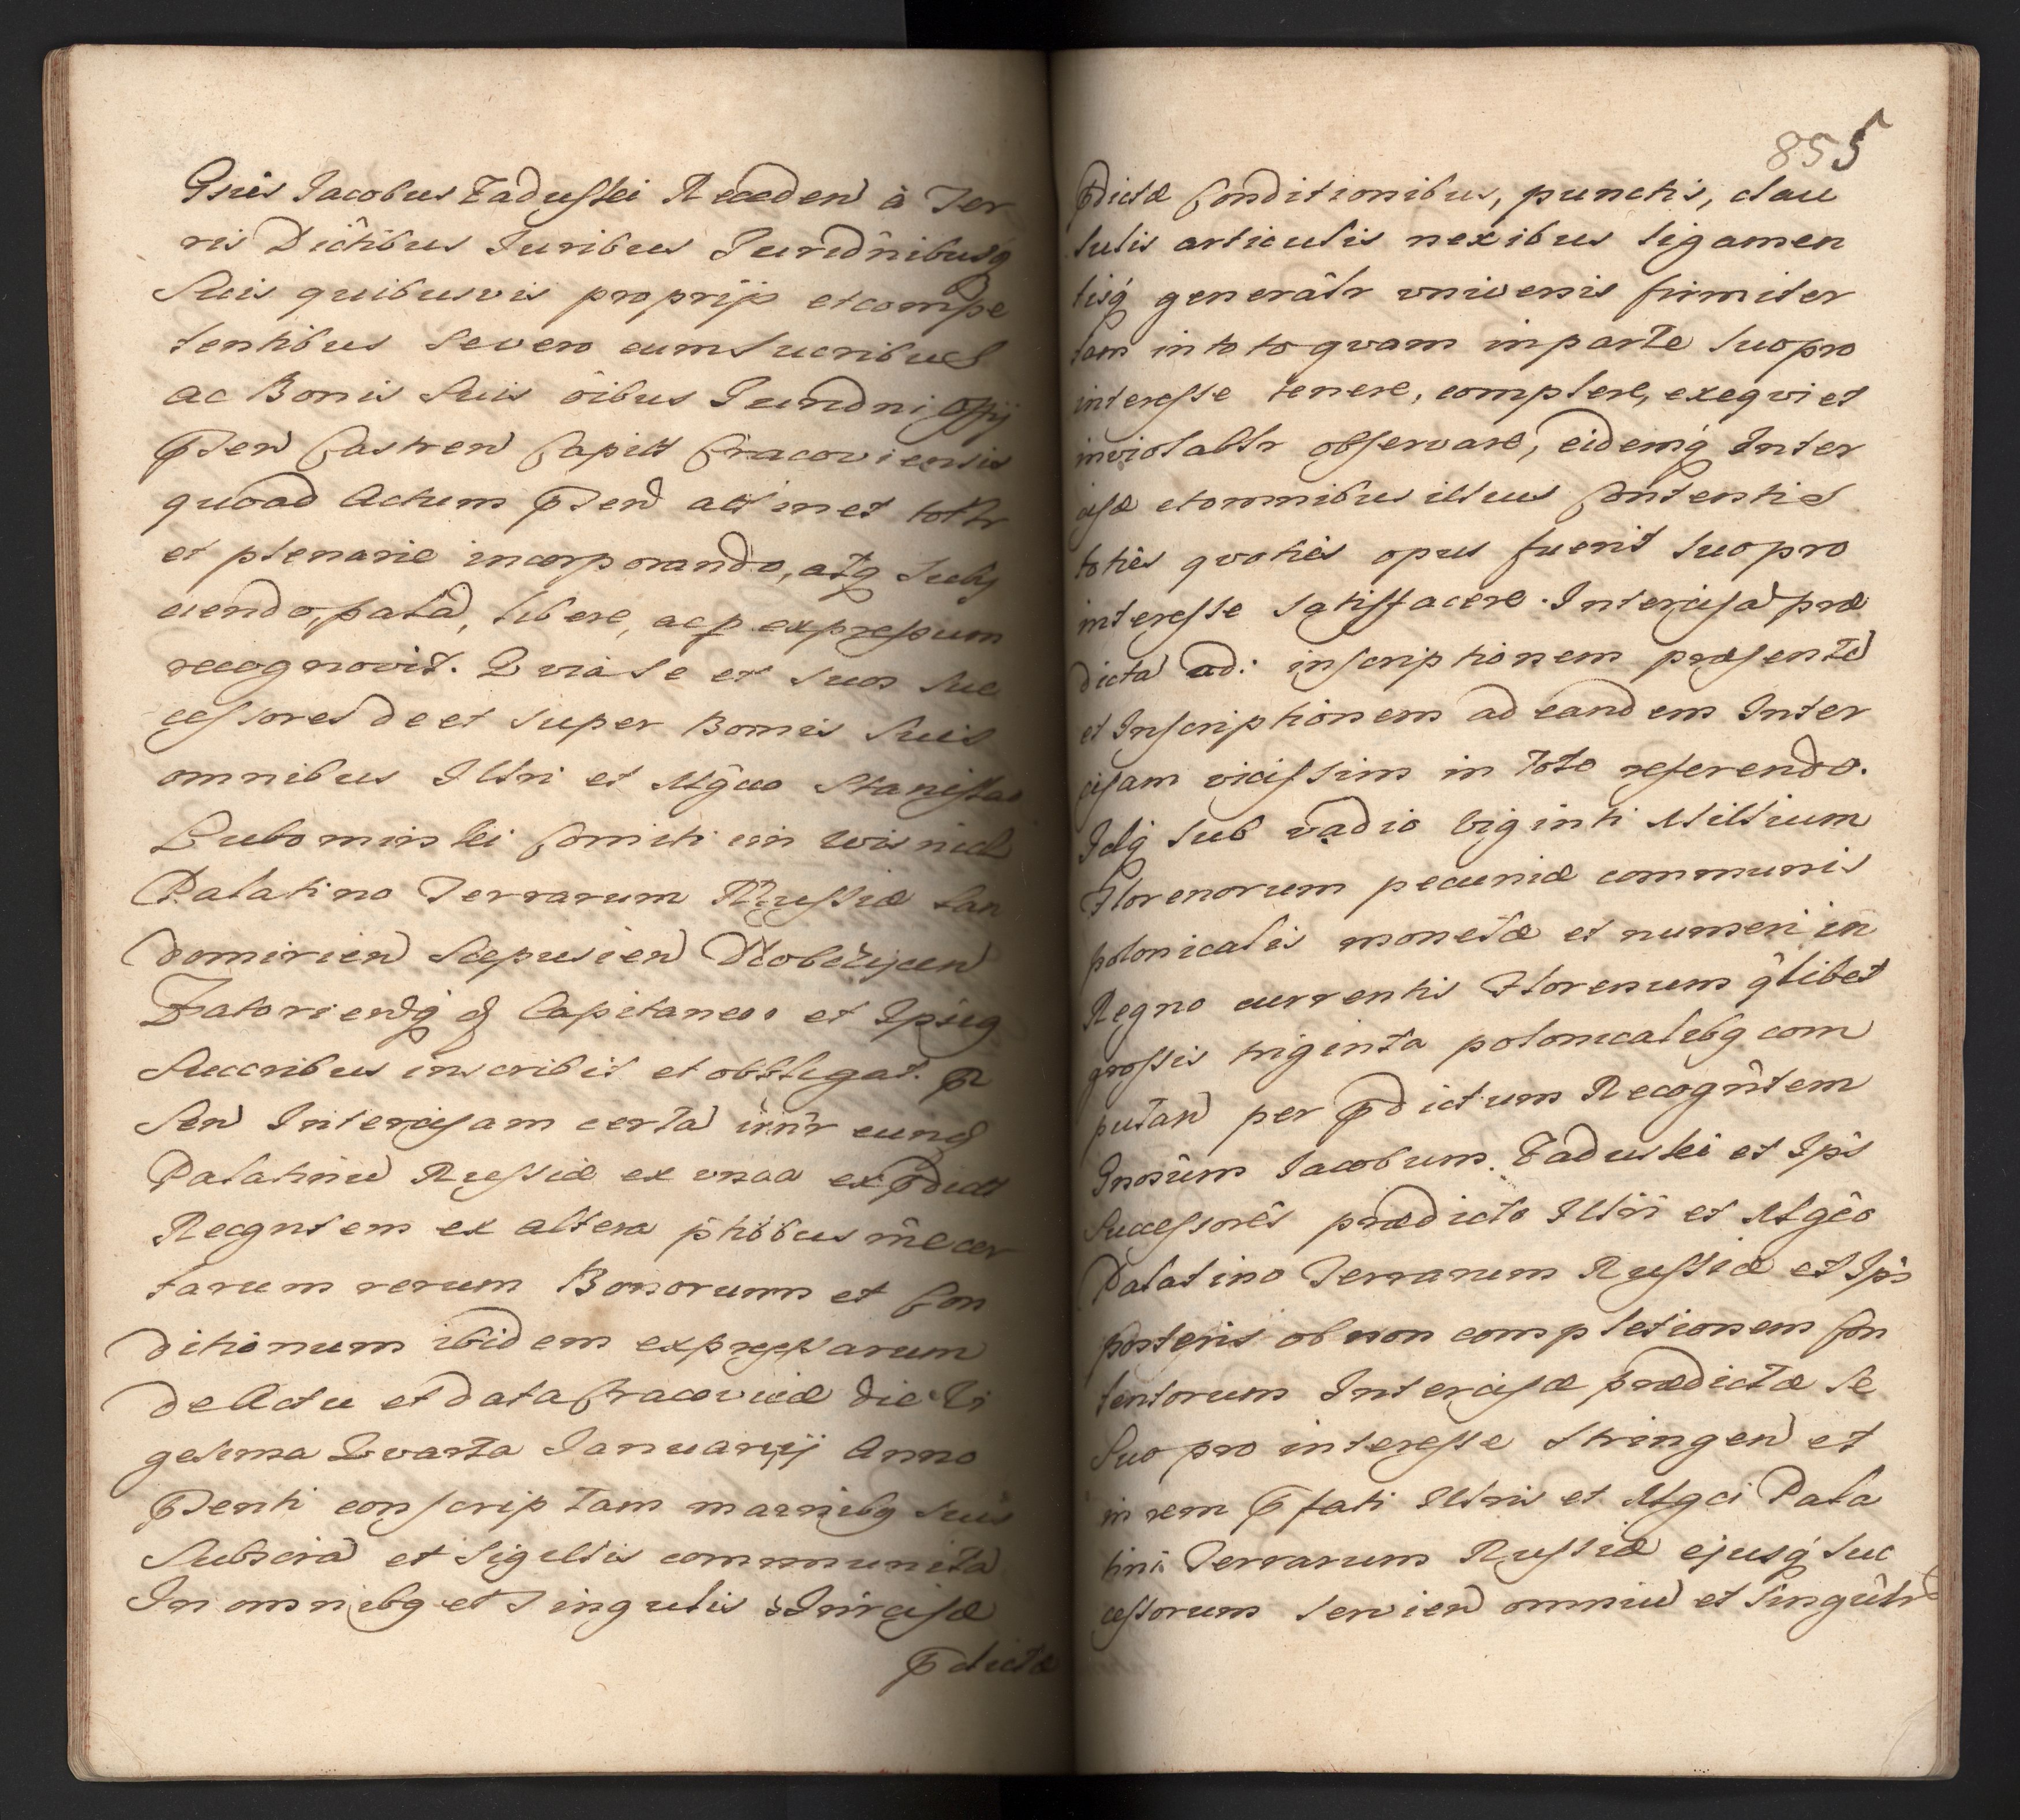 Gnsus Jacobus Zadusski Receden à Ter
ris Districtibus Juribus Jurednibusq
Suis quibusvis proprijs et compe
tentibus se vero cum Sucribus
ac Bonis Suis oîbus Juredni Offij
Pnten Castren Capitt Cracoviensis
quoad Actum pnten attinet tottr
et plenarie incorporando, atq subij
ciendo, palã, libere, acp expressum
recognovit. Quia se et suos suc
cessores de et super Bonis Suis
omnibus Illri et Mgco Stanislao
Lubomirski Comiti in Wisnicz
Palatino Terrarum Russiæ San
domirien Scepusien Dobczycen
Zatorienq & Capitaneo et Ipsiq
Succribus inscribit et obbligat. p
sen Intercisam certã intr eund
Palatinũ Russiæ ex una ex pdict
Recgntem ex altera ptibus rõe cer
tarum rerum Bonorum et Con
ditionum ibidem expressarum
de Actu et data Cracoviæ die Vi
gesima Qvarta Januarij Anno
pnti conscriptam manibq suis
Subscrã et Sigillis communitã
In omnibq et Singulis Intrcisæ
pdictæ
855
pdictæ Conditionibus, punctis, clau
sulis articulis nexibus ligamen
tisq generâlr vniversis firmiter
tam in toto qvam in parte suo pro
interesse tenere, complere, exeqvi et
inviolabltr observare, eidemq Inter
cisæ et omnibus illius Contentis
toties qvoties opus fuerit suo pro
interesse satisfacere. Intercisã præ
dictã ad: inscriptionem præsentẽ
et Inscriptionem ad eandem Inter
cisam vicissim in toto referendo.
Idq sub vadio Viginti Millium
Florenorum pecuniæ communis
polonicalis monetæ et numeri in
Regno currentis Florenum qlibet
grossis triginta polonicalibq com
putan per pdictum Recogntem
Gnosum Jacobum Zaduski et Ips
Successores prædicto Illri et Mgco
Palatino Terrarum Russiæ et Ips
posteris ob non completionem Con
tentorum Intercisæ prædictæ se
Suo pro interesse stringen et
in rem pfati Illris et Mgci Pala
tini Terrarum Russiæ ejusq suc
cessorum servien omniũ et singulr